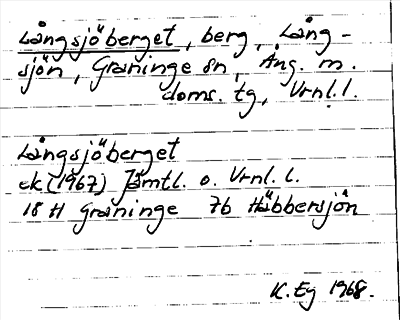 Långsjöberget, berg, Lång-
sjön, Graninge sn, Ång. m.
doms. tg, Vrnl. l.
Långsjöberget
ek (1967) Jämtl. o. Vrnl. l.
18 H Graninge 7b Häbbersjön
K. Eg 1968.